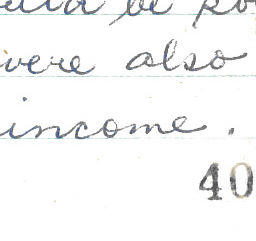 be
were also
income.
40